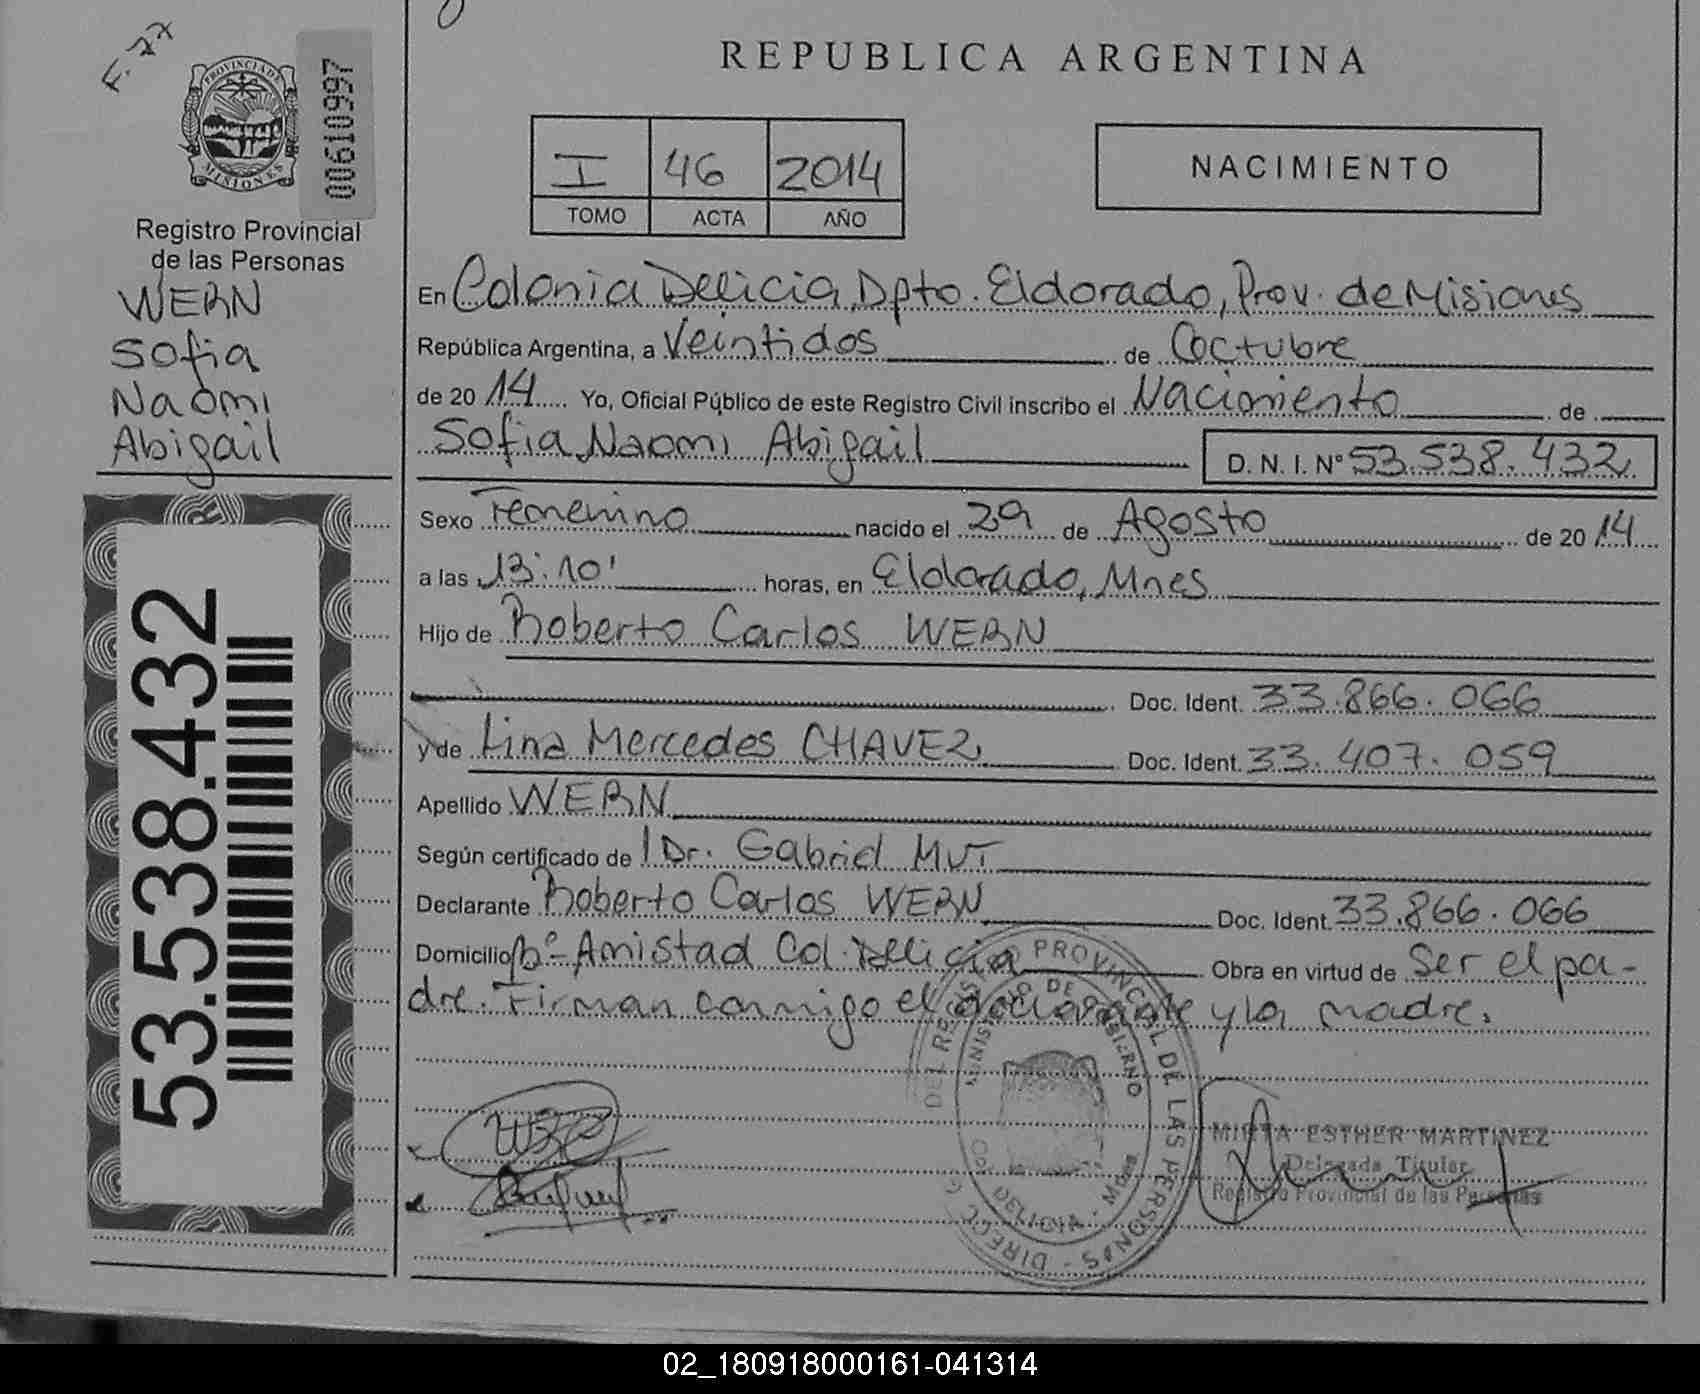 F. 77
PROVINCIA DE
MISIONES
00610997
Registro Provincial
de las Personas
WERN
Sofia
Naomi
Abigail
53.538.432
REPUBLICA ARGENTINA
I 46 2014
TOMO ACTA AÑO
NACIMIENTO
En Colonia Delicia, Dpto. Eldorado, Prov. de Misiones
República Argentina, a Veintidos de Octubre
de 20 14 Yo, Oficial Público de este Registro Civil inscribo el Nacimiento de
Sofia Naomi Abigail D. N. I. N° 53.538.432
Sexo Femenino nacido el 29 de Agosto de 20 14
a las 13:10' horas, en Eldorado, Mnes
Hijo de Roberto Carlos WERN
Doc. Ident. 33.866.066
y de Lina Mercedes CHAVEZ Doc. Ident. 33.407.059
Apellido WERN
Según certificado de Dr. Gabriel MUT
Declarante Roberto Carlos WERN Doc. Ident. 33.866.066
Domicilio Bº Amistad Col. Delicia Obra en virtud de Ser el pa-
dre. Firman conmigo el declarante y la madre.
DIRECC. DEL REGISTRO PROVINCIAL DE LAS PERSONAS
MINISTERIO DE GOBIERNO
COL. DELICIA - Mnes
MIRTA ESTHER MARTINEZ
Delegada Titular
Registro Provincial de las Personas
02_180918000161-041314